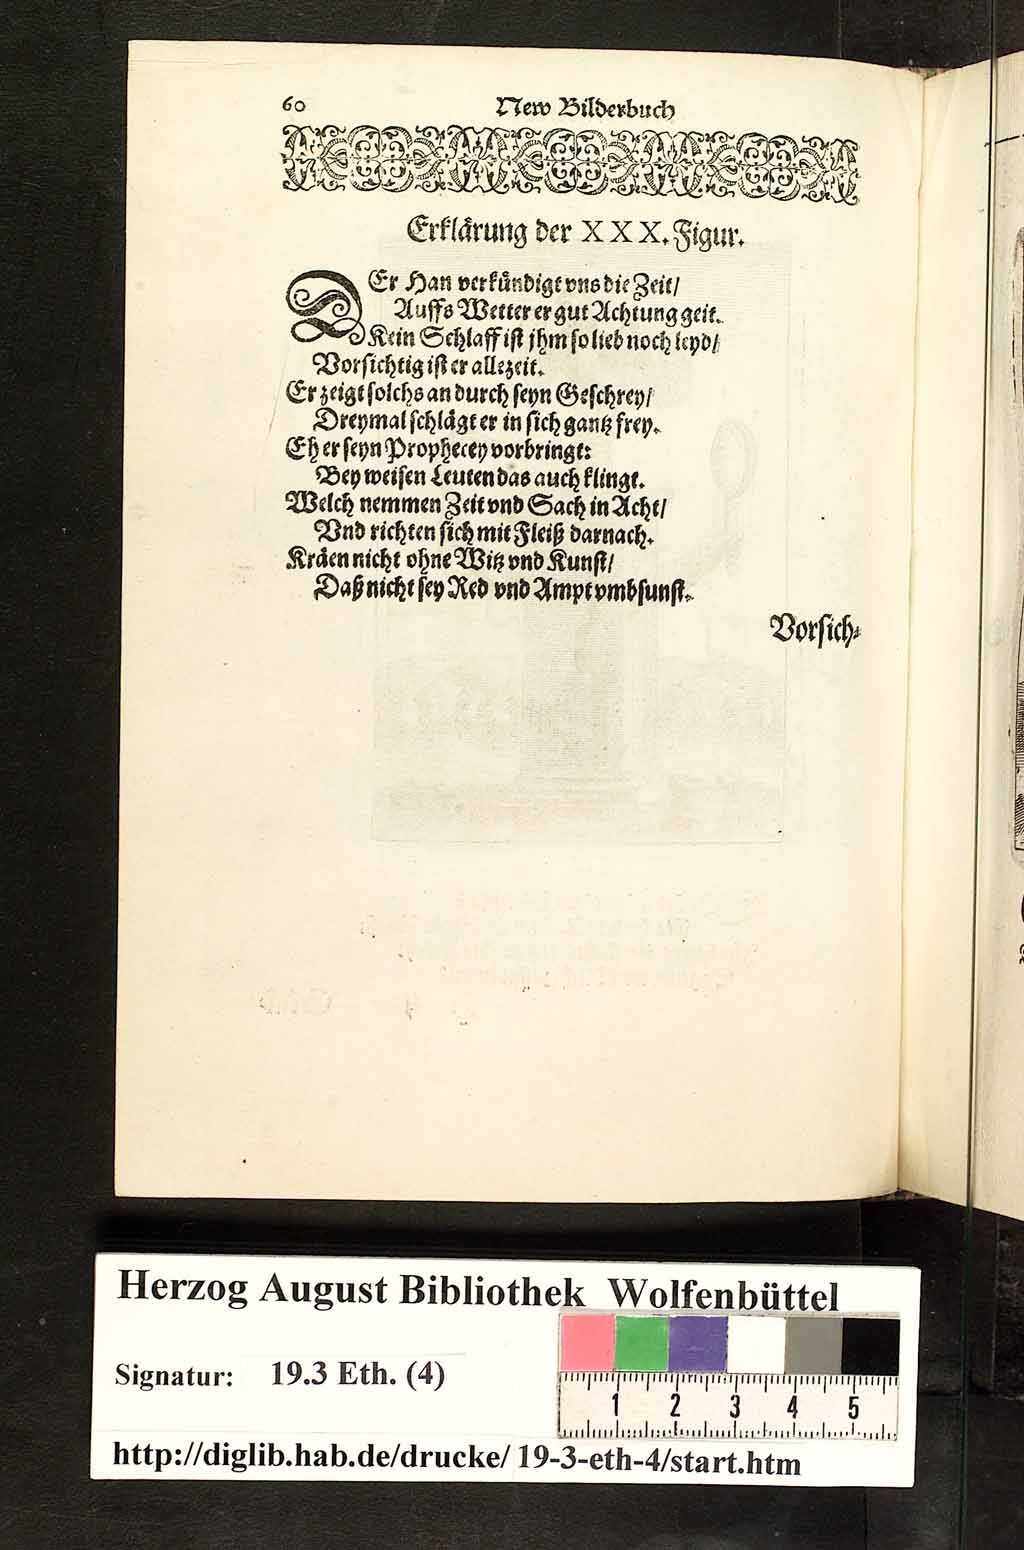 60 New Bilderbuch
Erklärung der XXX. Figur.
DEr Han verkündigt vns die Zeit/
Auffs Wetter er gut Achtung geit.
Kein Schlaff ist jhm so lieb noch leyd/
Vorsichtig ist er allezeit.
Er zeigt solchs an durch seyn Geschrey/
Dreymal schlägt er in sich gantz frey.
Eh er seyn Prophecey vorbringt:
Bey weisen Leuten das auch klingt.
Welch nemmen Zeit vnd Sach in Acht/
Vnd richten sich mit Fleiß darnach.
Kräen nicht ohne Witz vnd Kunst/
Daß nicht sey Red vnd Ampt vmbsunst.
Vorsich-
Herzog August Bibliothek Wolfenbüttel
Signatur: 19.3 Eth. (4)
1 2 3 4 5
http://diglib.hab.de/drucke/ 19-3-eth-4/start.htm